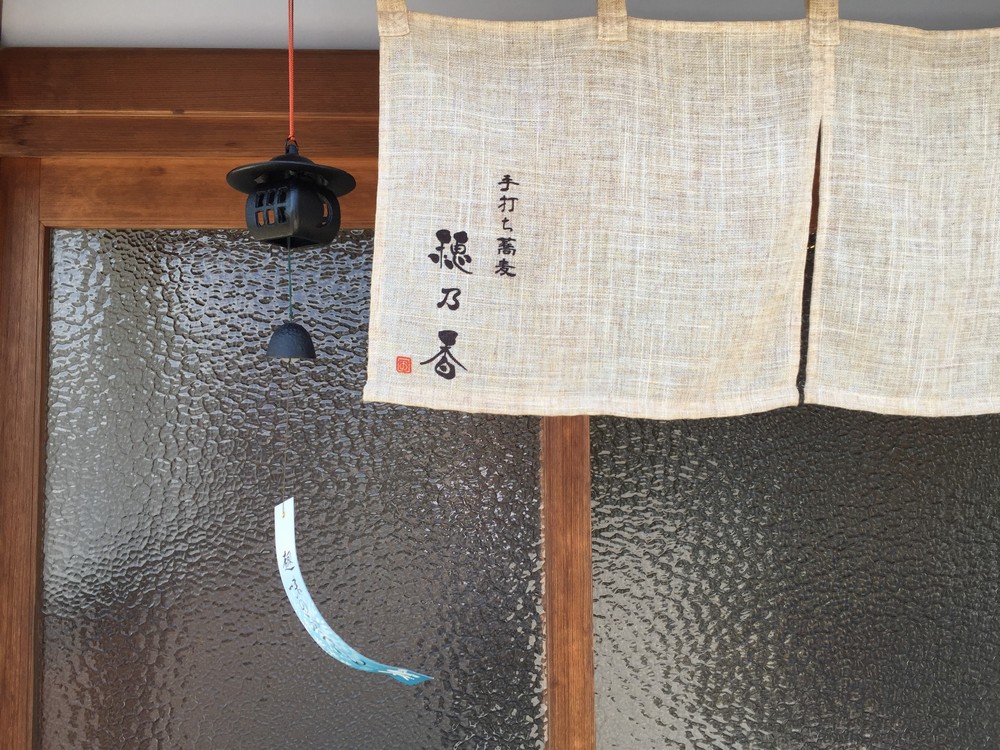 手打ち蕎麦
穂乃香